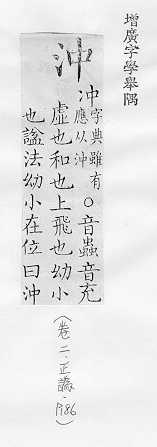 增廣字學舉隅
沖
冲字典雖有應从沖○音蟲音充
虛也和也上飛也幼小
也謚法幼小在位曰沖
(卷二.正譌.P86)